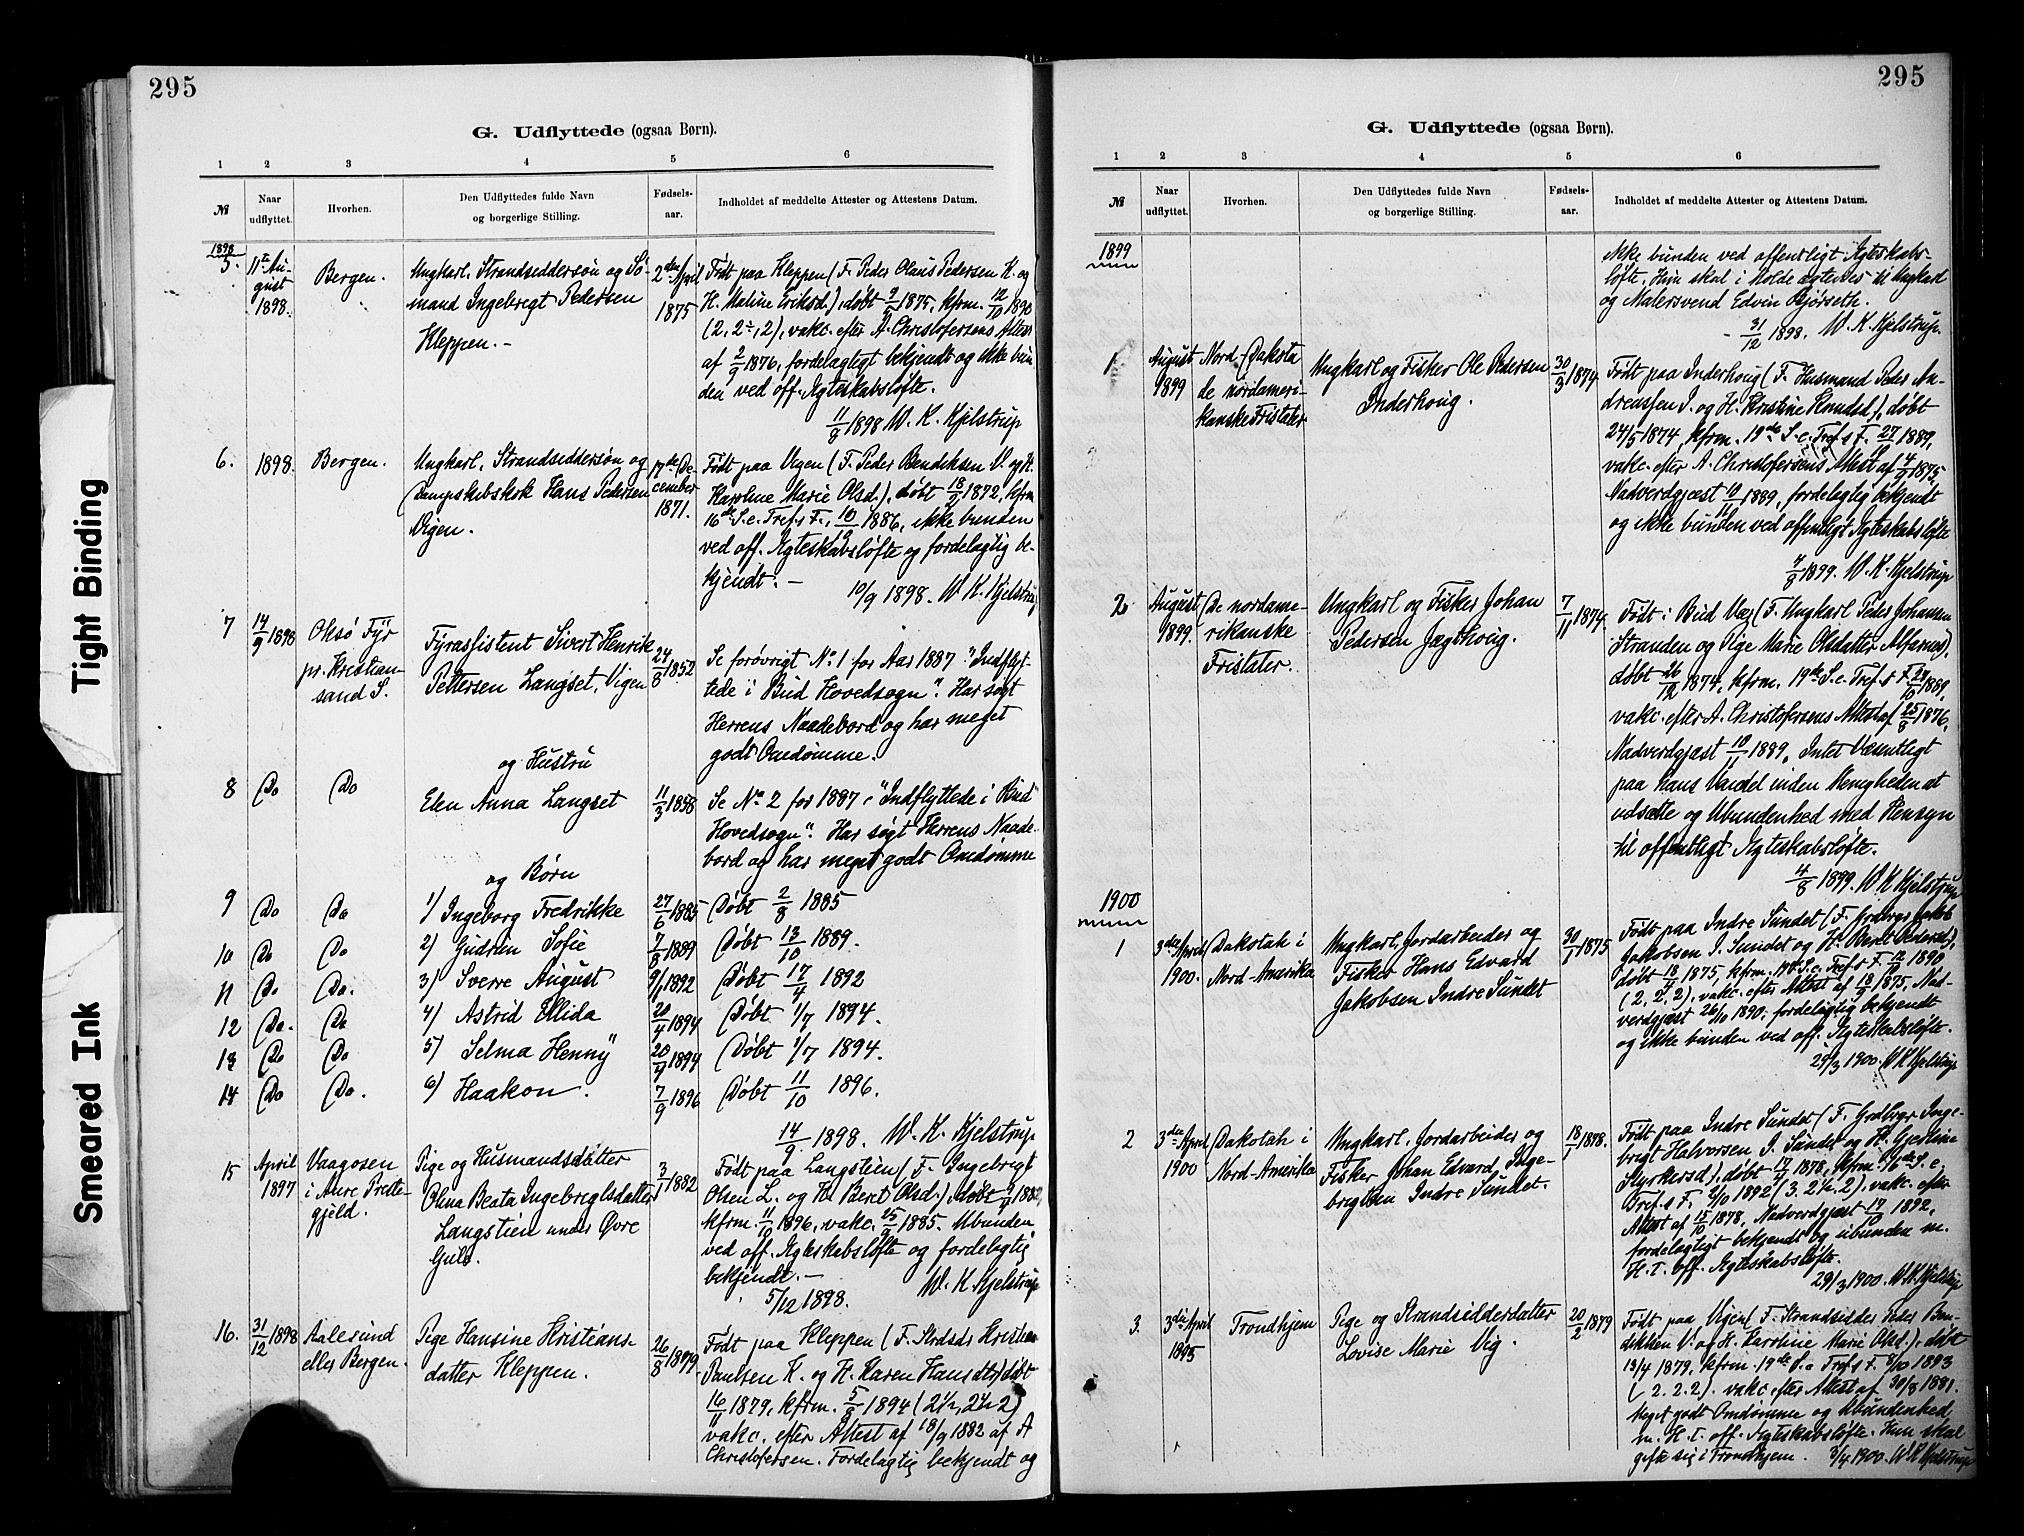 295
G. Udflyttede (ogsaa Børn).
1 2 3 4 5 6
№ Naar udflyttet. Hvorhen. Den Udflyttedes fulde Navn og borgerlige Stilling. Fødsels-aar. Indholdet af meddelte Attester og Attestens Datum.
1898
5. 11te August 1898. Bergen. Ungkarl, Strandsiddersøn og Sømand Ingebrigt Pedersen Kleppen.- 2den April 1875
Født paa Kleppen (F. Peder Olaus Pedersen K. og
H. Maline Eriksd.), døbt 1875, kfrm. 12/10 1890
(2, 2÷, 2), vakc. efter A. Christofersens Attest
af 2/9 1876, fordelagtigt bekjendt og ikke bun-
den ved off. Ægteskabsløfte.
11/8 1898 W. K. Kjelstrup
6. 1898. Bergen. Ungkarl, Strandsiddersøn og Dampskibskok Hans Pedersen Vigen. 17de December 1871.
Født paa Vigen (F. Peder Bendiksen V. og H.
Karoline Marie Olsd.), døbt 1872, kfrm.
16de S. e. Tref.s F. 10/10 1886, ikke bunden
ved off. Ægteskabsløfte og fordelagtig be-
kjendt. -
10/9 1898. W. K. Kjelstrup
7 14/9 1898 Oksø Fyr pr. Kristiansand S. Fyrassistent Sivert Henrik Pettersen Langset, Vigen 24/8 1852
Se forøvrigt No. 1 for Aar 1887 "Indflyt-
tede i Bud Hovedsogn". Har søgt
Herrens Naadebord og har meget
godt Omdømme.
og Hustru
8 Do Do Elen Anna Langset 11/3 1858
Se No. 2 for 1887 "Indflyttede i Bud
Hovedsogn". Har søgt Herrens Naade-
bord og har meget godt Omdømme
og Børn
9 Do Do 1) Ingeborg Fredrikke 27/6 1885 Døbt 2/8 1885
10 Do Do 2) Gudrun Sofie 7/8 1889 Døbt 13/10 1889.
11 Do Do. 3) Sverre August 9/1 1892 Døbt 17/4 1892
12 Do. Do 4) Astrid Ellida 20/4 1894 Døbt 1/7 1894.
13 Do Do 5) Selma Henny 20/4 1894 Døbt 1/7 1894.
14 Do Do. 6) Haakon. 7/9 1896 Døbt 11/10 1896.
14/9 1898. W. K. Kjelstrup
15 April 1897 Vaagosen i Aure Prestegjeld. Pige og Husmandsdatter Olina Beata Ingebrigtsdatter Langstien under Øvre Gule. 3/1 1882
Født paa Langstien (F. Ingebrigt
Olsen L. og H. Berit Olsd.), døbt 1882,
kfrm. 11/10 1896, vakc. 25/9 1885. Ubunden
ved off. Ægteskabsløfte og fordelagtig
bekjendt. -
5/12 1898. W. K. Kjelstrup
16. 31/12 1898 Aalesund eller Bergen. Pige Hansine Kristiansdatter Kleppen. 26/8 1879.
Født paa Kleppen (F. Strdsds Kristian
Paulsen K. og H. Karen Hansdtr) døbt
16/11 1879, kfrm. 1894 (2½, 2½ 2)
vakc. efter Attest af 18/9 1882 af A
Christofersen. Fordelagtig bekjendt og
295
G. Udflyttede (ogsaa Børn).
1 2 3 4 5 6
№ Naar udflyttet. Hvorhen. Den Udflyttedes fulde Navn og borgerlige Stilling. Fødsels-aar. Indholdet af meddelte Attester og Attestens Datum.
1899
ikke bunden ved offentligt Ægteskabs-
løfte. Hun skal i Molde ægtevies til Ungkarl
og Malersvend Edvin Bjørseth.
- 31/12 1898. W. K. Kjelstrup.
1 August 1899 Nord-Dakota de nordamerikanske Fristater Ungkarl og Fisker Ole Pedersen Inderhoug. 30/3 1874.
Født paa Inderhoug (F. Husmand Peder An-
dreassen I. og H. Kristine Knudsd.), døbt
24/5 1874 kfrm. 19de S. e. Tref.s F. 27/10 1889,
vakc. efter A. Christofersens Attest af 4/9 1875,
Nadverdgjæst 10/11 1889, fordelagtig bekjendt
og ikke bunden ved offentligt Ægteskabsløfte
1899. W. K. Kjelstrup
2 August 1899. De nordamerikanske Fristater. Ungkarl og Fisker Johan Pedersen Jægthoug. 7/11 1874.
Født i Bud Vær (F. Ungkarl Peder Johansen
Stranden og Pige Marie Olsdatter Alfarnes),
døbt 26/12 1874, kfrm. 19de S. e. Tref.s F. 1889,
vakc. efter A. Christofersens Attest af 25/8 1876,
Nadverdgjæst 10/11 1889. Intet Væsentligt
paa hans Vandel inden Menigheden at
udsætte og Ubundenhed med Hensyn
til offentligt Ægteskabsløfte.
4/8 1899. W K Kjelstrup
1900
1 3die April 1900. Dakotah i Nord-Amerika Ungkarl, Jordarbeider og Fisker Hans Edvard Jakobsen Indre Sundet 30/1 1875
Født paa Indre Sundet (F. Grdbrgr Jakob
Jakobsen I. Sundet og H. Beret Pedersd.),
døbt 18/4 1875, kfrm. 19de S. e. Tref.s F. 12/10 1890
(2, 2, 2), vakc. efter Attest af 18/9 1875, Nad-
verdgjæst 26/10 1890; fordelagtig bekjendt
og ikke bunden ved off. Ægteskabsløfte.
29/3 1900. W K Kjelstrup
2 3die April 1900. Dakotah i Nord-Amerika Ungkarl, Jordarbeider og Fisker Johan Edvard Ingebrigtsen Indre Sundet. 18/1 1878.
Født paa Indre Sundet (F. Grdbrgr Inge-
brigt Halvorsen I. Sundet og H. Gjertine
Styrkersd), døbt 1878, kfrm. 16de S. e.
Tref.s F. 2/10 1892 (3. 2½. 2), vakc. efter
Attest af 15/10 1878, Nadverdgjæst 1892,
fordelagtigt bekjendt og ubunden m.
H. t. off. Ægteskabsløfte.
29/3 1900. W. K. Kjelstrup
3. 3die April 1895 Trondhjem Pige og Strandsidderdatter Lovise Marie Vig. 20/2 1879
Født paa Vigen (F. Strandsidder Peder Ben-
diktsen V. og H. Karoline Marie Olsd.), døbt
13/4 1879, kfrm. 19de S. e Tref.s F. 8/10 1893
(2. 2. 2). vakc. efter Attest af 30/8 1881.
Meget godt Omdømme og Ubundenhed
m. H. t. off. Ægteskabsløfte. Hun skal
gifte sig i Trondhjem. 3/4 1900. W K Kjelstrup
Tight Binding
Smeared Ink